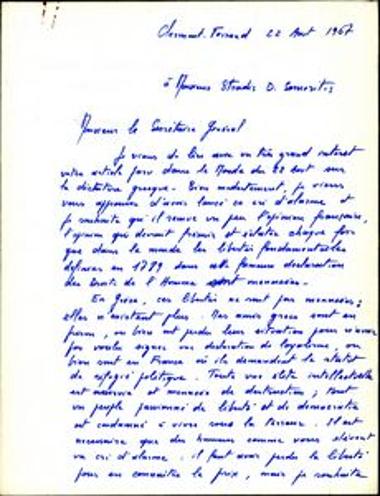 Clermont-Ferrand 22 Aout 1967
à Monsieur Stendis D.
Monsieur le Secrétaire Général
Je viens de lire avec un très grand intérêt
votre article paru dans le Monde du 22 aout sur
la dictature grecque. Bien modestement, je viens
vous d'avoir lancé ce cri d'alarme et
je souhaite qu'il remue un peu l'opinion française,
l'opinion qui devrait frémir et éclater chaque fois
que dans le monde les libertés fondamentales
définies en 1789 dans cette fameuse déclaration
des Droits de l'Homme sont menacées.
En Grèce, ces libertés ne sont pas menacées ;
elles n'existent plus. Mes amis grecs sont en
prison, ou bien ont perdu leur situation pour n'avoir
pas voulu signer une déclaration de loyalisme, ou
bien sont en France où ils demandent le statut
de réfugié politique. Toute une élite intellectuelle
est et menacée de destruction ; tout
un peuple passionné de liberté et de démocratie
est condamné à vivre sous la terreur. Il est
nécessaire que des hommes comme vous élèvent
un cri d'alarme. Il faut avoir perdu la liberté
pour en connaitre le prix, mais je souhaite